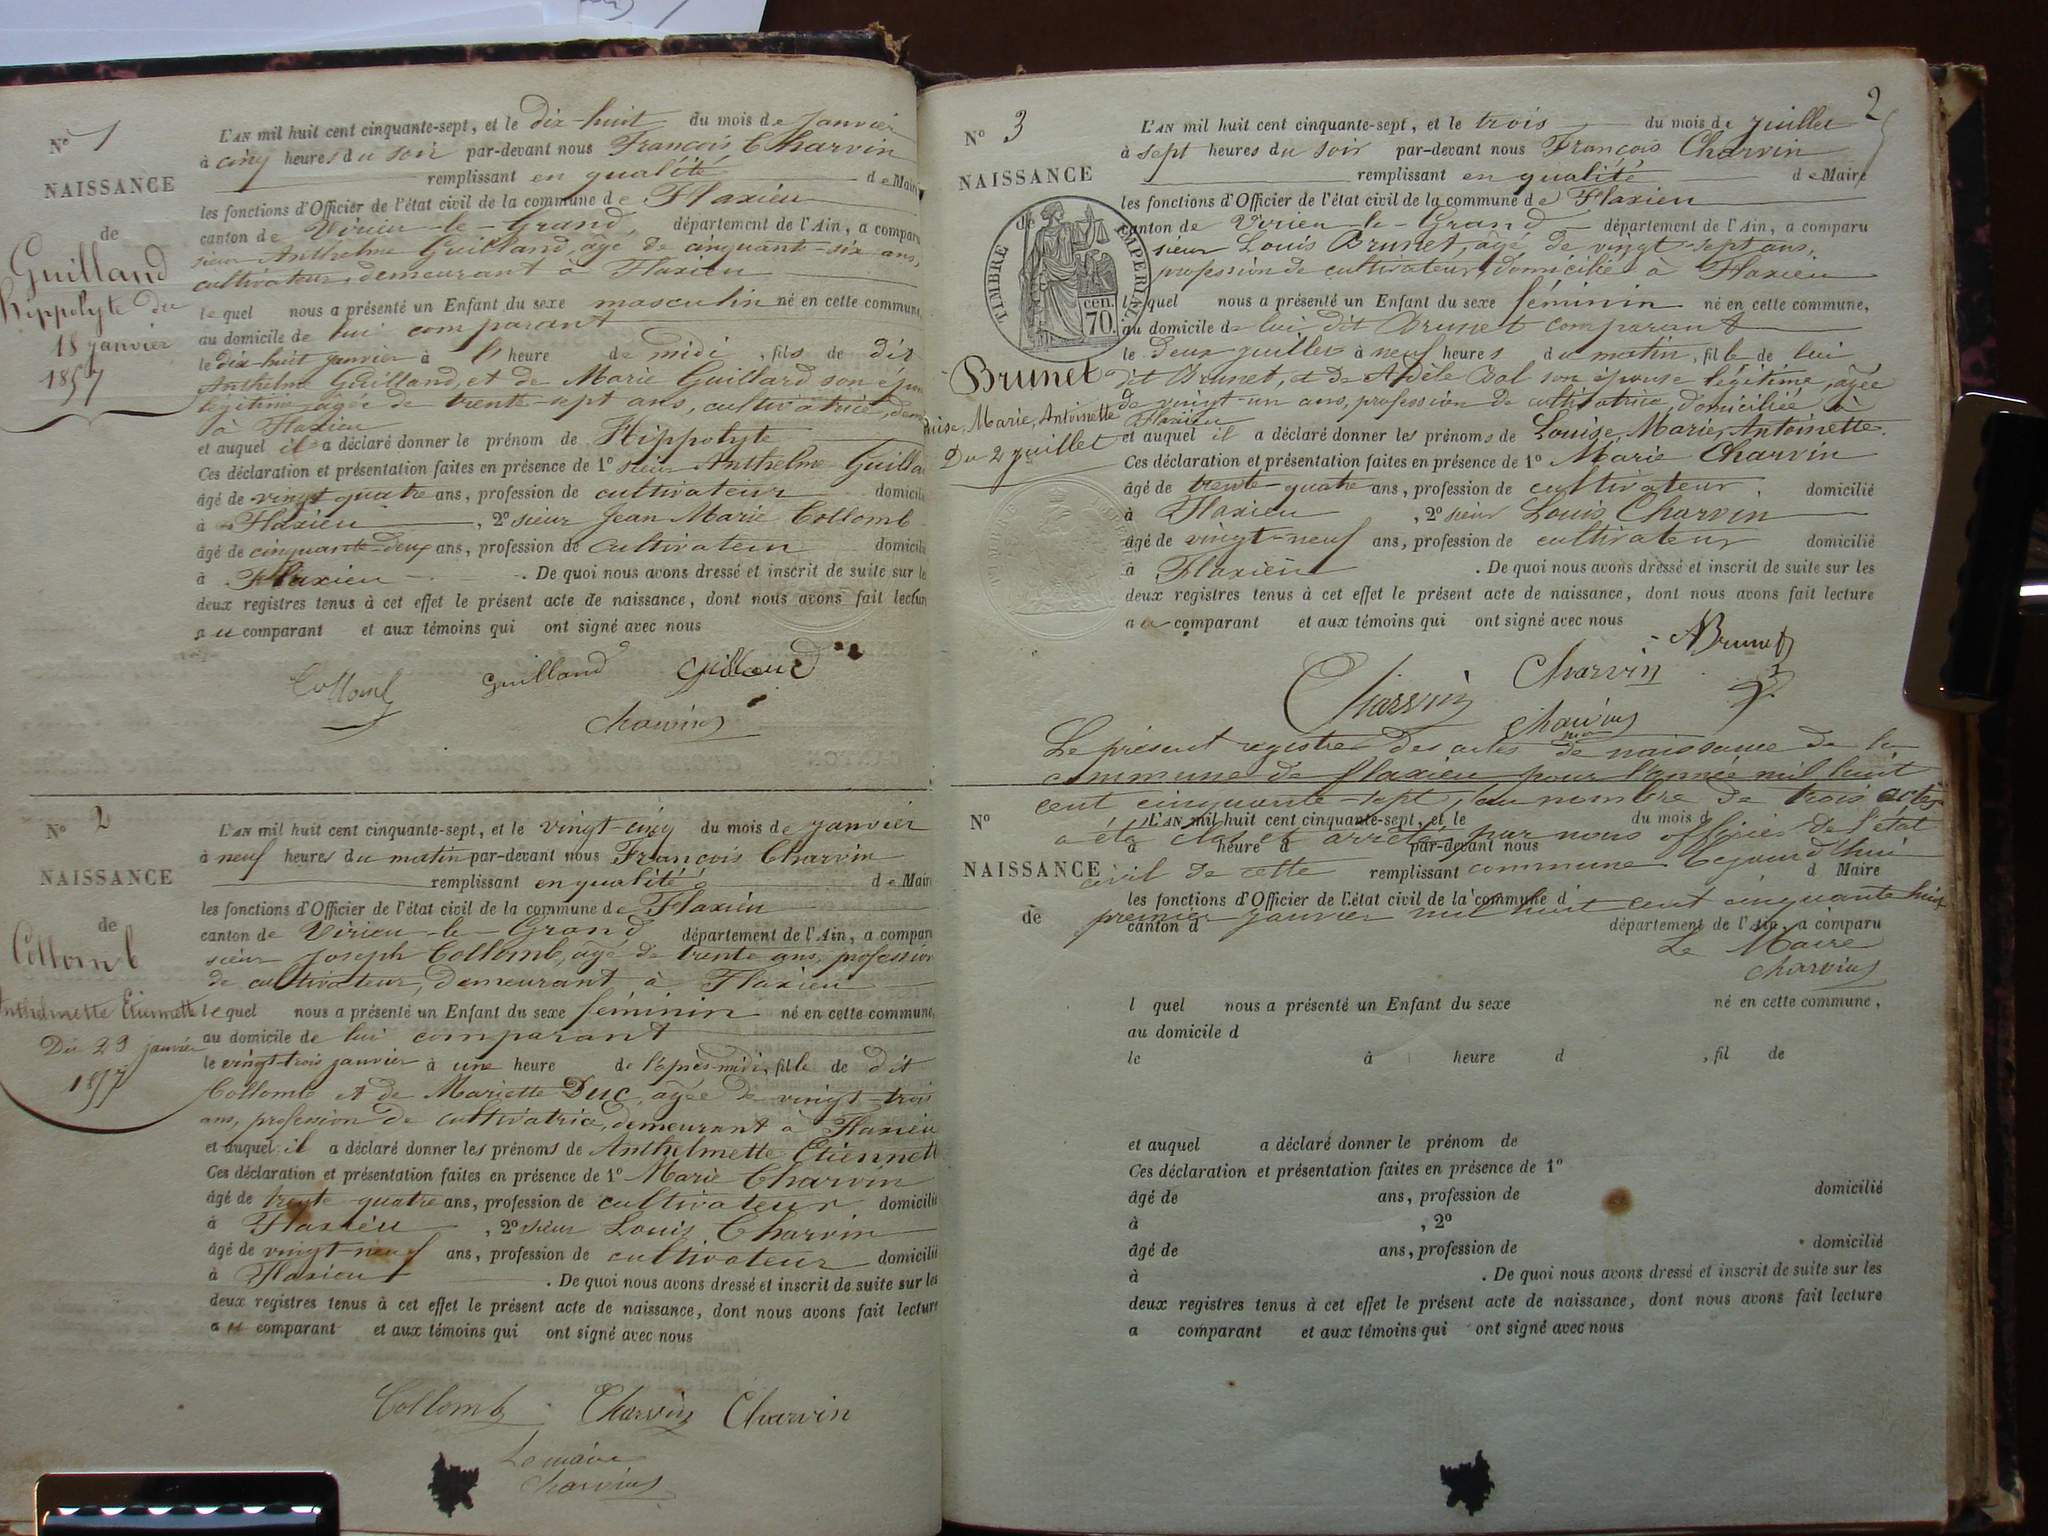 N° 1
NAISSANCE
de
Guilland
hippolyte du
18 janvier
1857
L'AN mil huit cent cinquante-sept, et le dix-huit du mois de janvier
à cinq heures du soir par-devant nous François Charvin
remplissant en qualité de Maire
les fonctions d'Officier de l'état civil de la commune de Flaxieu
canton de Virieu-le-Grand, département de l'Ain, a comparu
sieur Anthelme Guilland, agé de cinquante-six ans,
cultivateur, demeurant à Flaxieu
lequel nous a présenté un Enfant du sexe masculin né en cette commune,
au domicile de lui comparant
le dix-huit janvier à heure de midi, fils de dit
Anthelme Guilland, et de Marie Guillard son épouse
légitime agée de trente-sept ans, cultivatrice,
à Flaxieu
et auquel il a déclaré donner le prénom de Hippolyte
Ces déclaration et présentation faites en présence de 1° sieur Anthelme Guilla
âgé de vingt quatre ans, profession de cultivateur domicilié
à Flaxieu, 2° sieur Jean Marie Collomb
âgé de cinquante-deux ans, profession de cultivateur domicilié
à Flaxieu. De quoi nous avons dressé et inscrit de suite sur les
deux registres tenus à cet effet le présent acte de naissance, dont nous avons fait lecture
au comparant et aux témoins qui ont signé avec nous
Collomb Guilland Guilland
Charvin
N° 2
NAISSANCE
de
Collomb
Anthelmette Etiennette
Du 23 janvier
1857
L'AN mil huit cent cinquante-sept, et le vingt-cinq du mois de janvier
à neuf heures du matin par-devant nous François Charvin
remplissant en qualité de Maire
les fonctions d'Officier de l'état civil de la commune de Flaxieu
canton de Virieu-le-Grand département de l'Ain, a comparu
sieur Joseph Collomb, agé de trente ans, profession
de cultivateur, demeurant à Flaxieu
lequel nous a présenté un Enfant du sexe féminin né en cette commune,
au domicile de lui comparant
le vingt-trois janvier à une heure de l'après-midi, fille de dit
Collomb et de Mariette Duc, agée de vingt-trois
ans, profession de cultivatrice, demeurant à Flaxieu
et auquel il a déclaré donner les prénoms de Anthelmette Etiennette
Ces déclaration et présentation faites en présence de 1° Marie Charvin
âgé de trente quatre ans, profession de cultivateur domicilié
à Flaxieu, 2° sieur Louis Charvin
âgé de vingt-neuf ans, profession de cultivateur domicilié
à Flaxieu. De quoi nous avons dressé et inscrit de suite sur les
deux registres tenus à cet effet le présent acte de naissance, dont nous avons fait lecture
au comparant et aux témoins qui ont signé avec nous
Collomb Charvin Charvin
Le maire
Charvin
2
N° 3
NAISSANCE
de
TIMBRE IMPÉRIAL
70 cen.
Brunet
Louise, Marie, Antoinette
Du 2 juillet
L'AN mil huit cent cinquante-sept, et le trois du mois de juillet
à sept heures du soir par-devant nous François Charvin
remplissant en qualité de Maire
les fonctions d'Officier de l'état civil de la commune de Flaxieu
canton de Virieu-le-Grand département de l'Ain, a comparu
sieur Louis Brunet, âgé de vingt-sept ans,
profession de cultivateur, domicilié à Flaxieu
lequel nous a présenté un Enfant du sexe féminin né en cette commune,
au domicile de lui, dit Brunet comparant
le deux juillet à neuf heures du matin, fille de lui
dit Brunet, et de Adèle Bal son épouse légitime, agée
de vingt-un ans, profession de cultivatrice, domiciliée à
Flaxieu
et auquel il a déclaré donner les prénoms de Louise, Marie, Antoinette.
Ces déclaration et présentation faites en présence de 1° Marie Charvin
âgé de trente-quatre ans, profession de cultivateur, domicilié
à Flaxieu, 2° sieur Louis Charvin
âgé de vingt-neuf ans, profession de cultivateur domicilié
à Flaxieu. De quoi nous avons dressé et inscrit de suite sur les
deux registres tenus à cet effet le présent acte de naissance, dont nous avons fait lecture
au comparant et aux témoins qui ont signé avec nous
Brunet
Charvin Charvin
Charvin
Le présent registre des actes de naissance de la
commune de Flaxieu pour l'année mil huit
cent cinquante-sept, au nombre de trois actes
a été clos et arrêté par nous officier de l'état
civil de cette commune cejourd'hui
premier janvier mil huit cent cinquante huit
Le Maire
Charvin
N°
NAISSANCE
de
L'AN mil huit cent cinquante-sept, et le du mois d
à heure d par-devant nous
remplissant d Maire
les fonctions d'Officier de l'état civil de la commune d
canton d département de l'Ain, a comparu
l quel nous a présenté un Enfant du sexe né en cette commune,
au domicile d
le à heure d , fil de
et auquel a déclaré donner le prénom de
Ces déclaration et présentation faites en présence de 1°
âgé de ans, profession de domicilié
à , 2°
âgé de ans, profession de domicilié
à . De quoi nous avons dressé et inscrit de suite sur les
deux registres tenus à cet effet le présent acte de naissance, dont nous avons fait lecture
a comparant et aux témoins qui ont signé avec nous